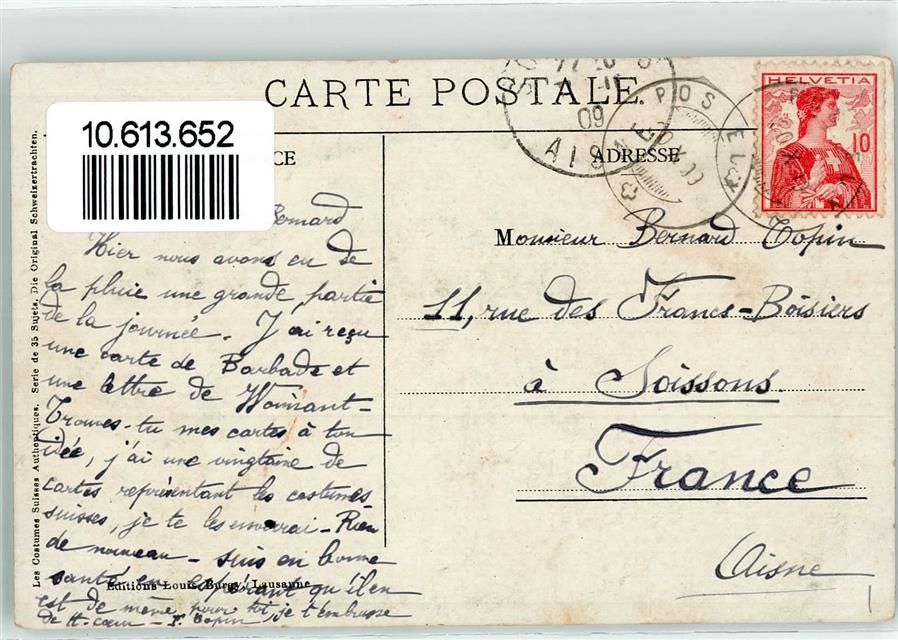 CARTE POSTALE.
10.613.652
CE
ADRESSE
HELVETIA
10
09
AIS
POS
Les Costumes Suisses Authentiques. Serie de 35 Sujets, Die Original Schweizertrachten.
Bernard
Hier nous avons eu de
la pluie une grande partie
de la journée. J'ai reçu
une carte de Barbade et
une lettre de Woinant-
Trouves-tu mes cartes à ton
idée, j'ai une vingtaine de
cartes représentant les costumes
suisses, je te les enverrai - Rien
de nouveau - suis en bonne
santé en espérant qu'il en
est de même pour toi, je t'embrasse
de tt. coeur -
Editions Louis Burgy, Lausanne
Monsieur Bernard Copin
11, rue des Francs-Boisiers
à Soissons
France
Aisne